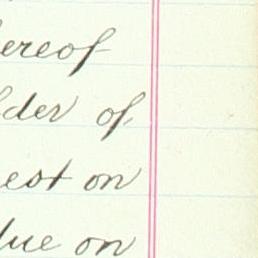 ereof
lder of
est on
due on